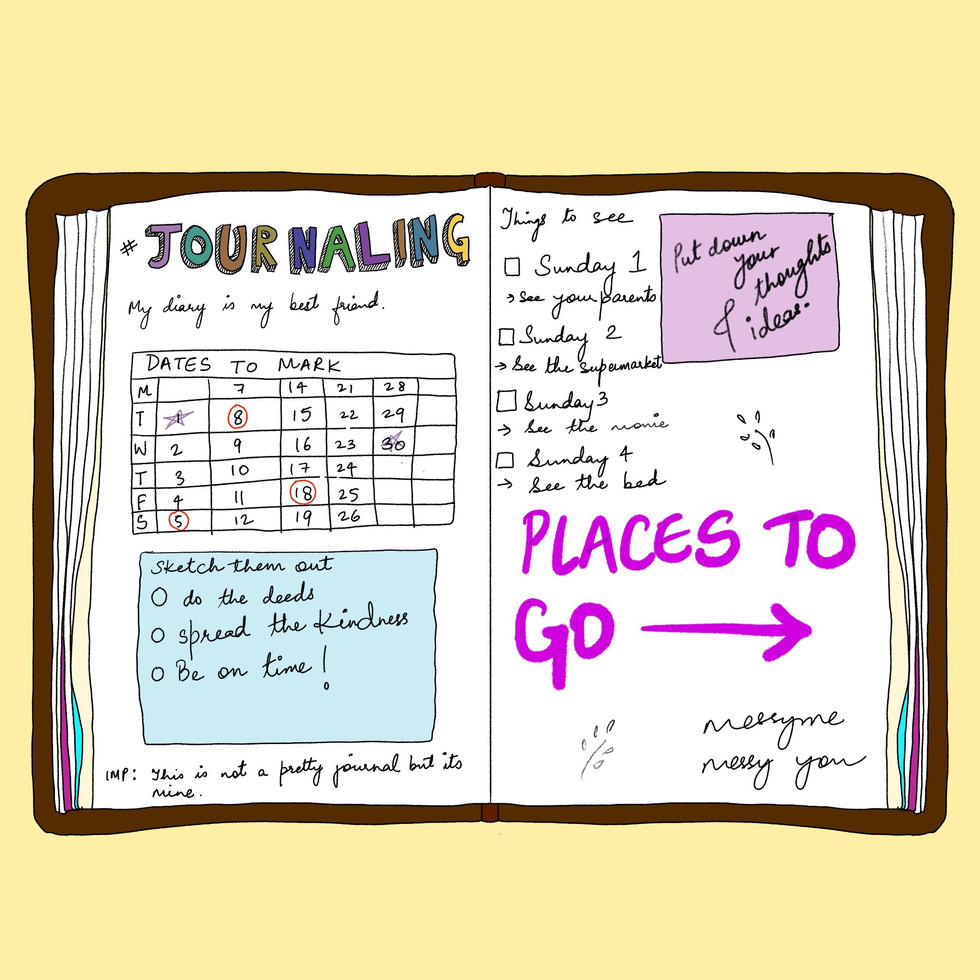 # JOURNALING
My diary is my best friend.
DATES TO MARK
M 7 14 21 28
T 1 8 15 22 29
W 2 9 16 23 30
T 3 10 17 24
F 4 11 18 25
S 5 12 19 26
Sketch them out
O do the deeds
O spread the kindness
O Be on time!
IMP: This is not a pretty journal but its
mine.
Things to see
Sunday 1
→ See your parents
Sunday 2
→ See the supermarket
Sunday 3
→ See the movie
Sunday 4
→ See the bed
Put down
your
thoughts
& ideas.
PLACES TO
GO →
messy me
messy you